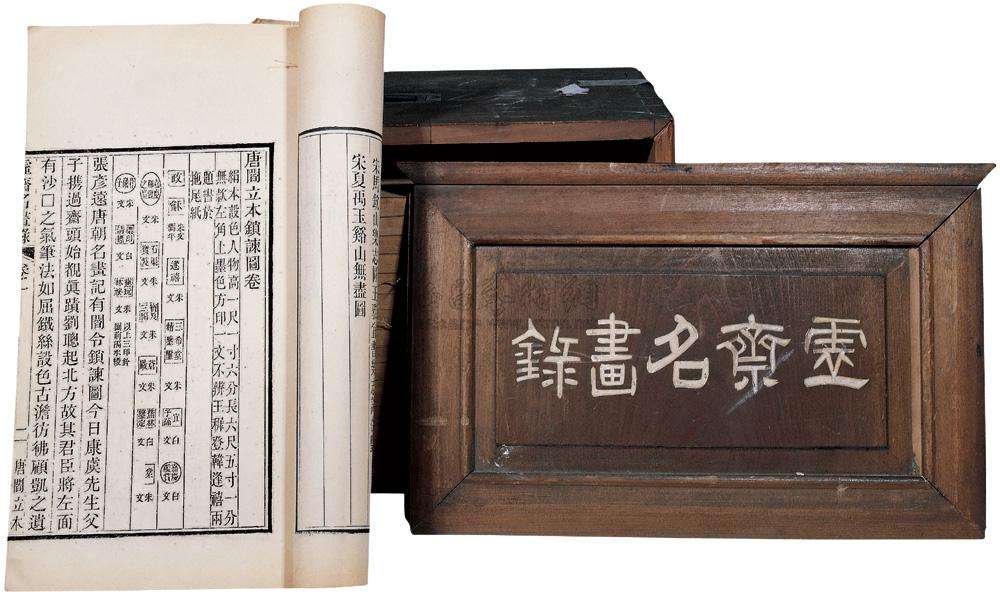 虛齋名畫錄
宋夏禹玉谿山無盡圖
唐閻立本鎖諫圖卷
絹本設色人物高一尺一寸六分長六尺五寸一分
無款左角上墨色方印一文不辨王穉登韓逢禧兩
題書於
拖尾紙
政龢 朱文 朱文 三希堂精鑒璽 朱文 宜子孫 白文 白文
張彥遠唐朝名畫記有閻令鎖諫圖今日康虞先生父
子携過齋頭始覩眞蹟劉聰起北方故其君臣將左面
有沙口之氣筆法如屈鐵絲設色古澹彷彿顧凱之遺
虛齋名畫錄 卷一 唐閻立本